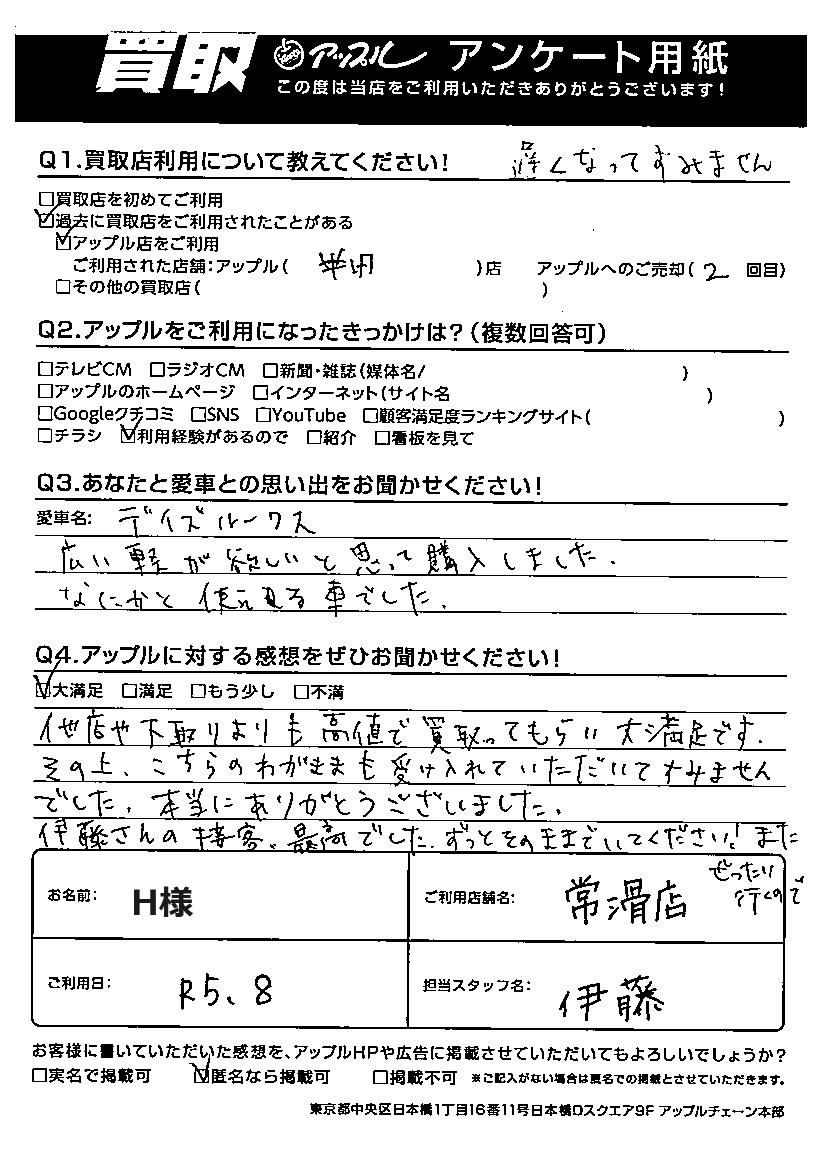 買取 アップル アンケート用紙
この度は当店をご利用いただきありがとうございます!
Q1.買取店利用について教えてください! 遅くなってすみません
□買取店を初めてご利用
☑過去に買取店をご利用されたことがある
☑アップル店をご利用
ご利用された店舗:アップル( 半田 )店 アップルへのご売却( 2 回目)
□その他の買取店( )
Q2.アップルをご利用になったきっかけは?(複数回答可)
□テレビCM □ラジオCM □新聞・雑誌(媒体名/ )
□アップルのホームページ □インターネット(サイト名 )
□Googleクチコミ □SNS □YouTube □顧客満足度ランキングサイト( )
□チラシ ☑利用経験があるので □紹介 □看板を見て
Q3.あなたと愛車との思い出をお聞かせください!
愛車名: デイズルークス
広い軽が欲しいと思って購入しました.
なにかと使える車でした.
Q4.アップルに対する感想をぜひお聞かせください!
☑大満足 □満足 □もう少し □不満
他店や下取りよりも高値で買取ってもらい大満足です.
その上、こちらのわがままも受け入れていただいてすみません
でした. 本当にありがとうございました.
伊藤さんの接客、最高でした. ずっとそのままでいてください! また
ぜったい
行くので
お名前: H様
ご利用店舗名: 常滑店
ご利用日: R5、8
担当スタッフ名: 伊藤
お客様に書いていただいた感想を、アップルHPや広告に掲載させていただいてもよろしいでしょうか?
□実名で掲載可 ☑匿名なら掲載可 □掲載不可 ※ご記入がない場合は匿名での掲載とさせていただきます。
東京都中央区日本橋1丁目16番11号日本橋Dスクエア9F アップルチェーン本部